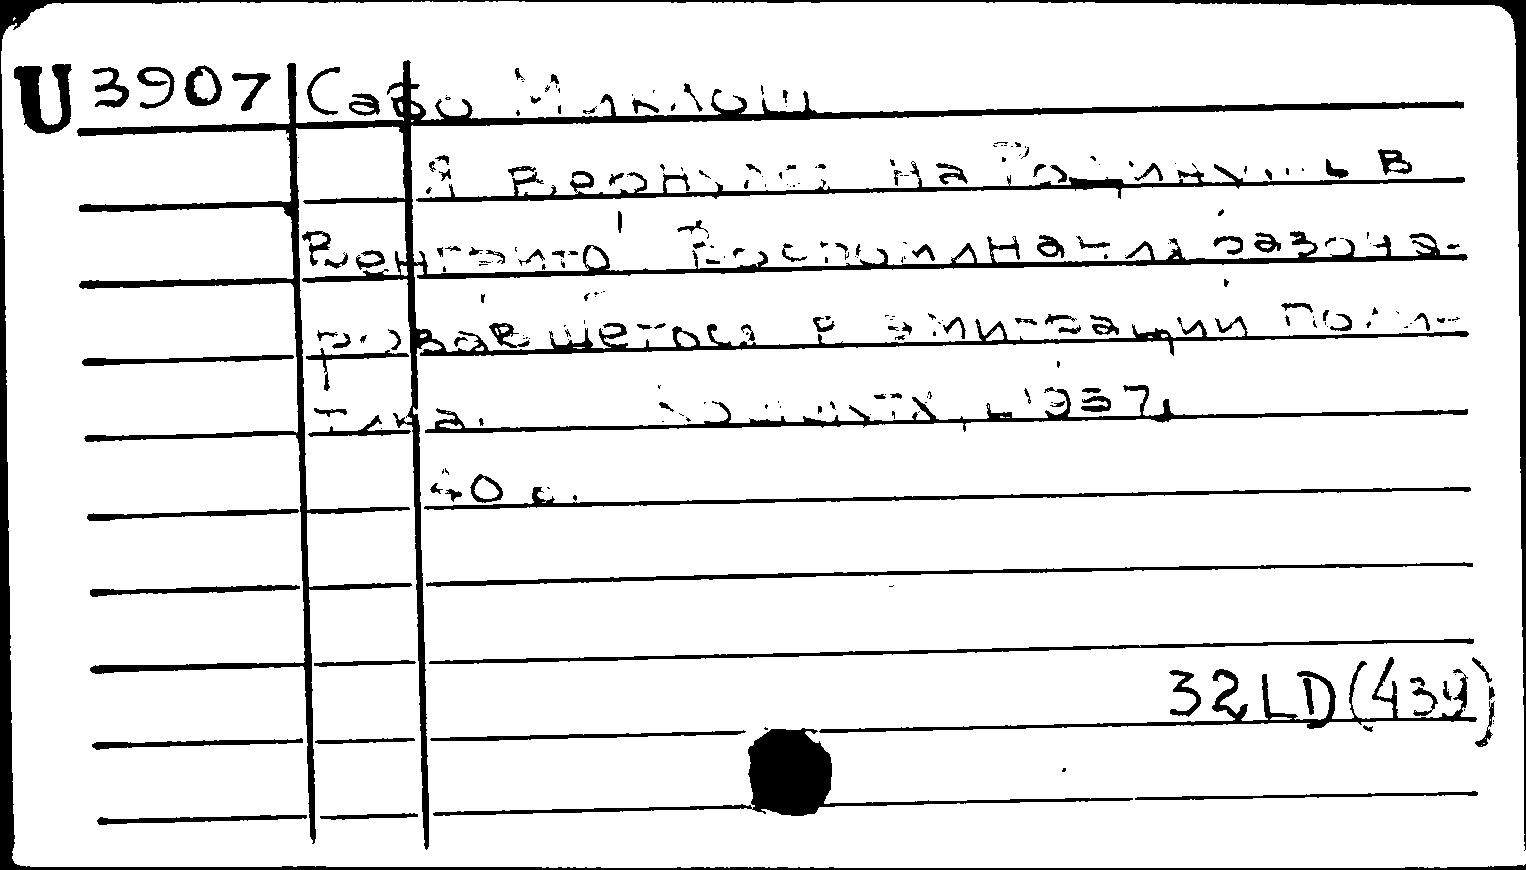 U 3907 Сабо Миклош
Я вернулся на Родину в
Венгрию. Воспоминания разоча-
ровавшегося в эмиграции поли-
тика. [1957]
40 с.
32LD(439)